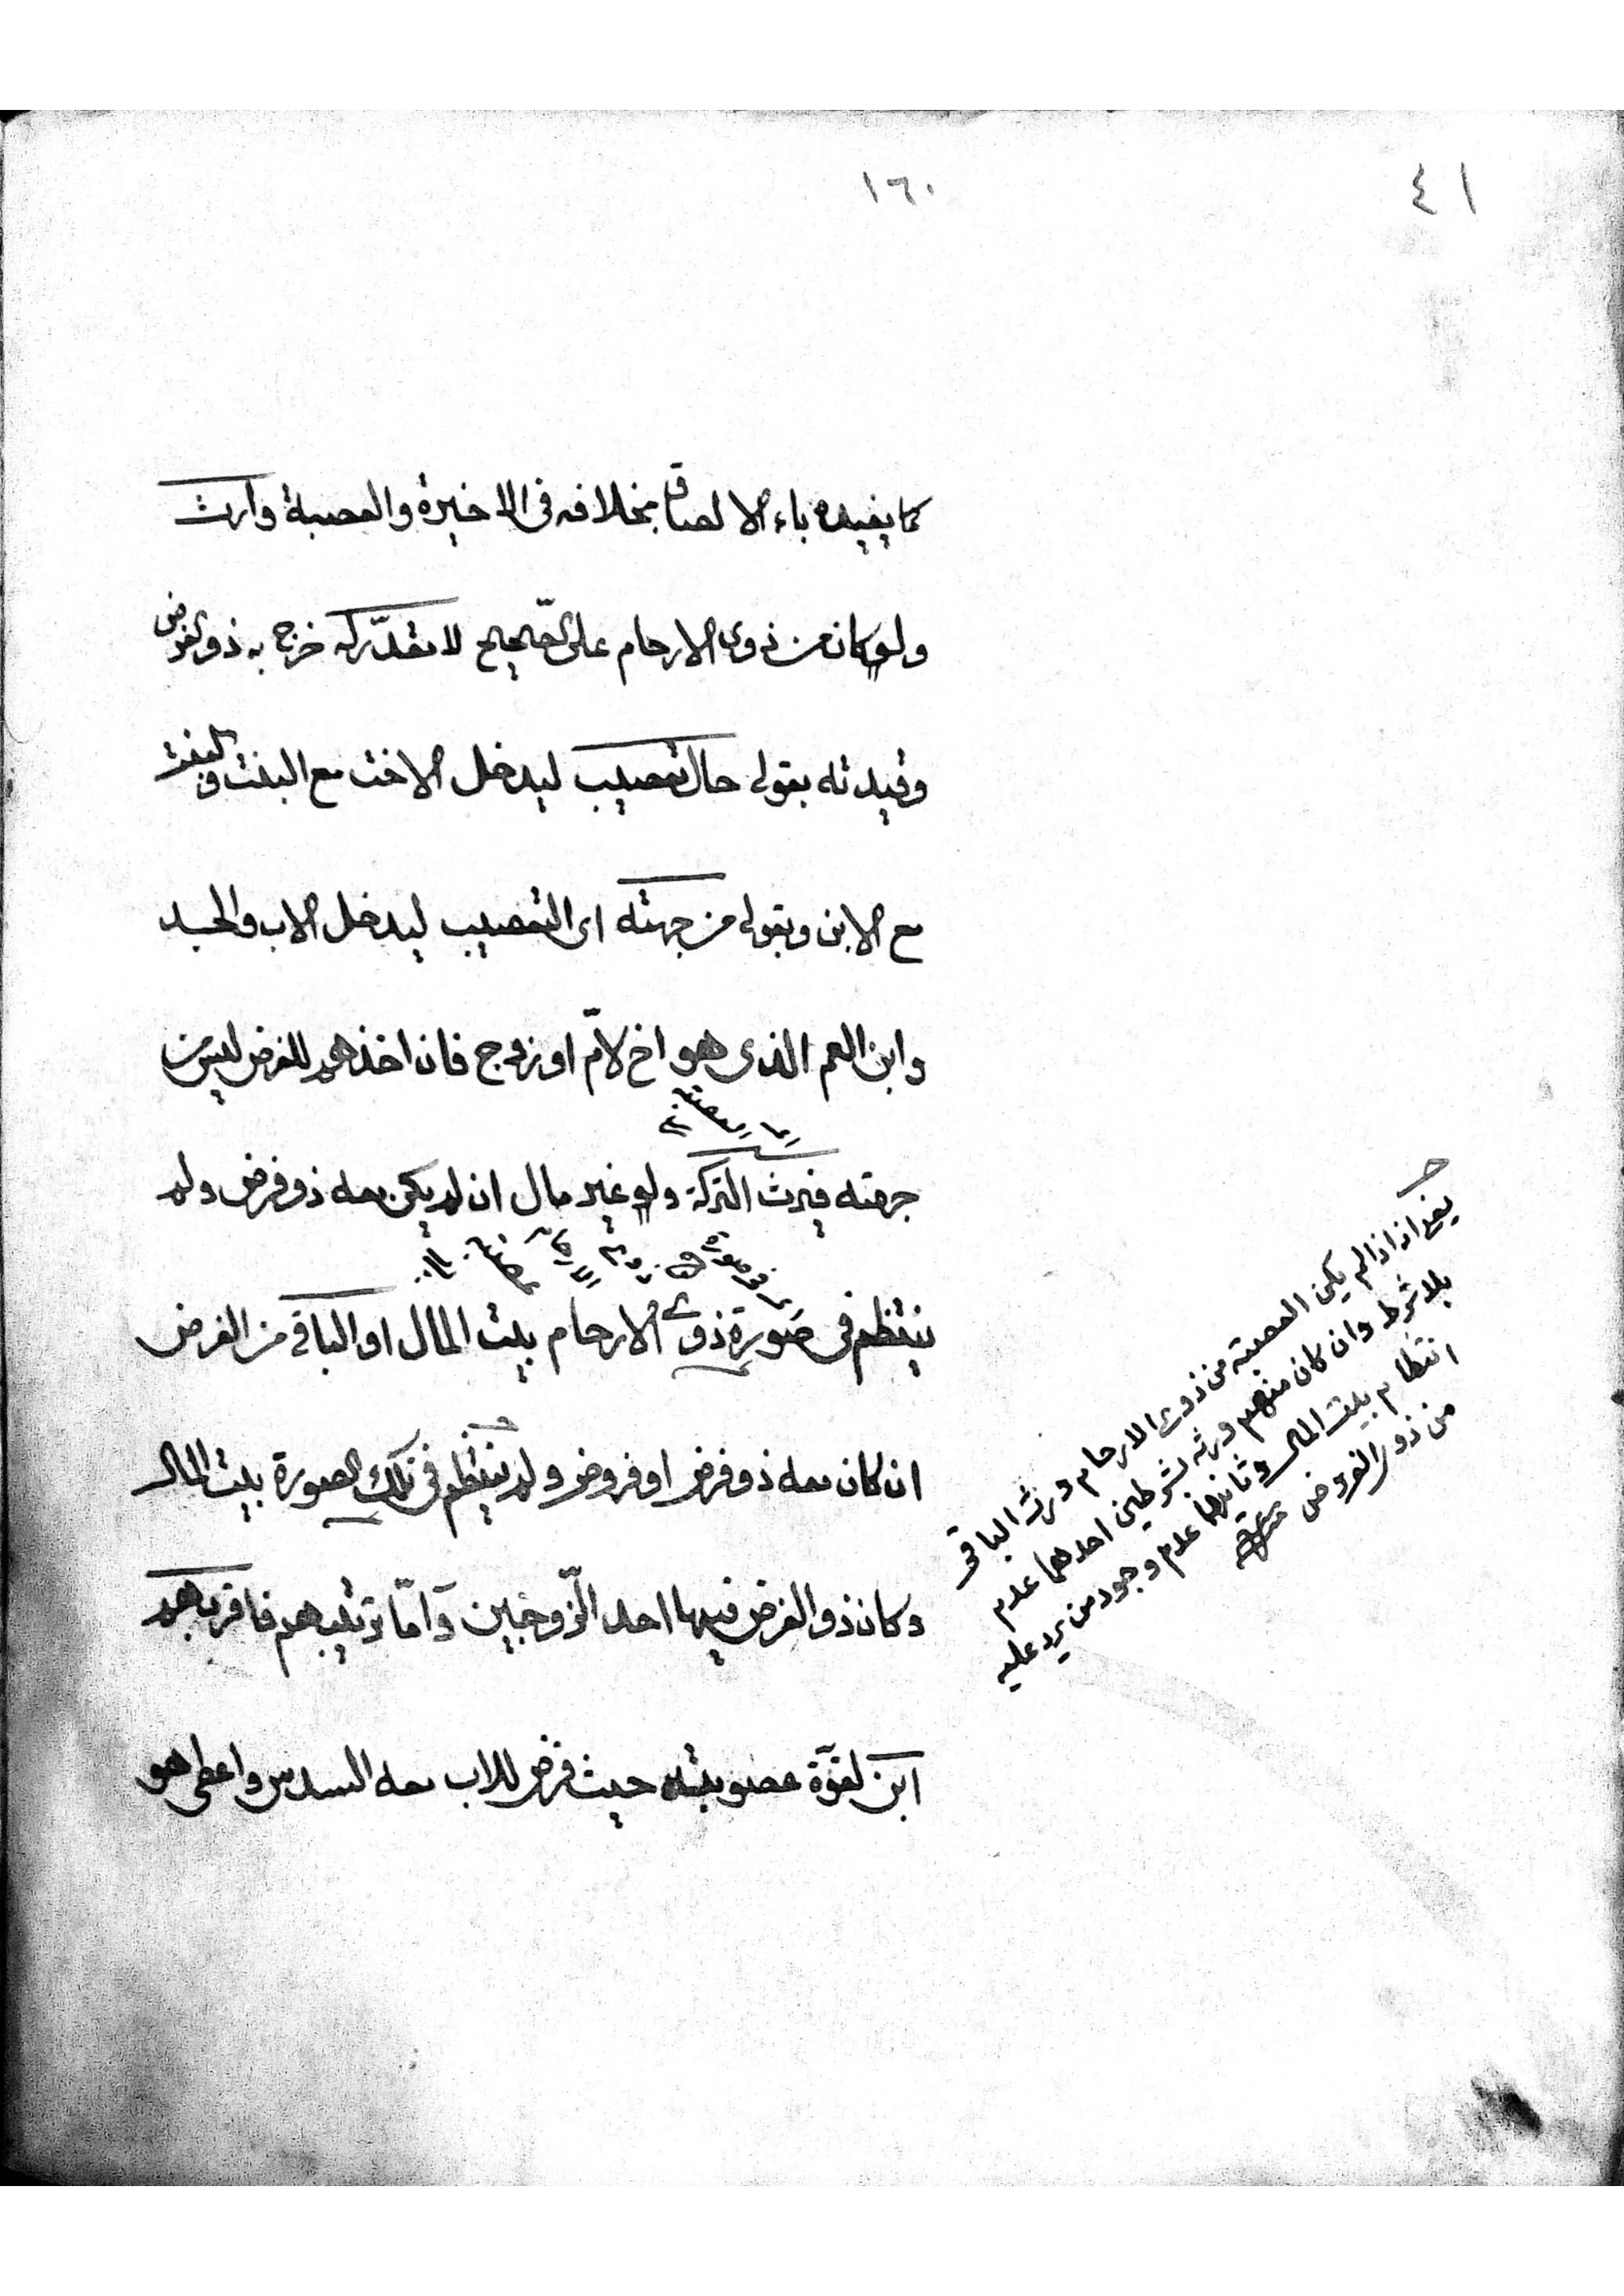 ٤١
١٦٠
كما يفيده باء الالصاق بخلافه فى الاخيرة والعصبة وارث
ولو كان من ذوى الارحام على الصّحيح لا مقدّر له خرج به ذو الفرض
وقيدته بقولى حال تعصيب ليدخل الاخت مع البنت والبنت
مع الابن وبقولى من جهته اى التعصيب ليدخل الاب والجد
وابن العم الذى هو اخ لامّ او زوج فان اخذهم للفرض ليس من
جهته فيرث التركة ولو غير مال ان لم يكن معه ذو فرض ولم
ينتظم فى صورة ذوى الارحام بيت المال او الباقى من الفرض
ان كان معه ذو فرض او فروض ولم ينتظم فى تلك الصورة بيت المال
وكان ذو الفرض فيها احد الزّوجين وامّا ترتيبهم فاقربهم
ابن لقوّة عصوبته حيث فرض للاب معه السدس واعطى هو
يعنى انه اذا لم يكن العصبة من ذوى الارحام ورث الباقى
بلا شرط وان كان منهم ورثه بشرطين احدهما عدم
انتظام بيت المال وثانيهما عدم وجود من يرد عليه
من ذوى الفروض